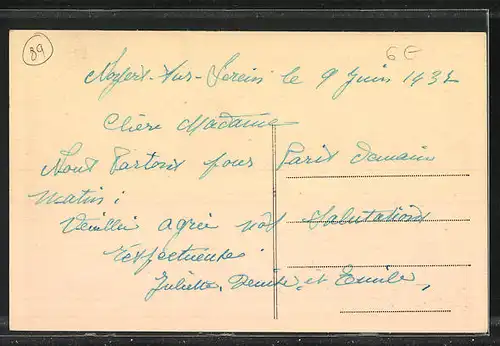 89
6E
Noyers-sur-Serein le 9 Juin 1932
Chère Madame
Nous Partons pour Paris demain
matin ;
Veuillez agréer nos Salutations
respectueuses
Juliette, Denise, et Emile,